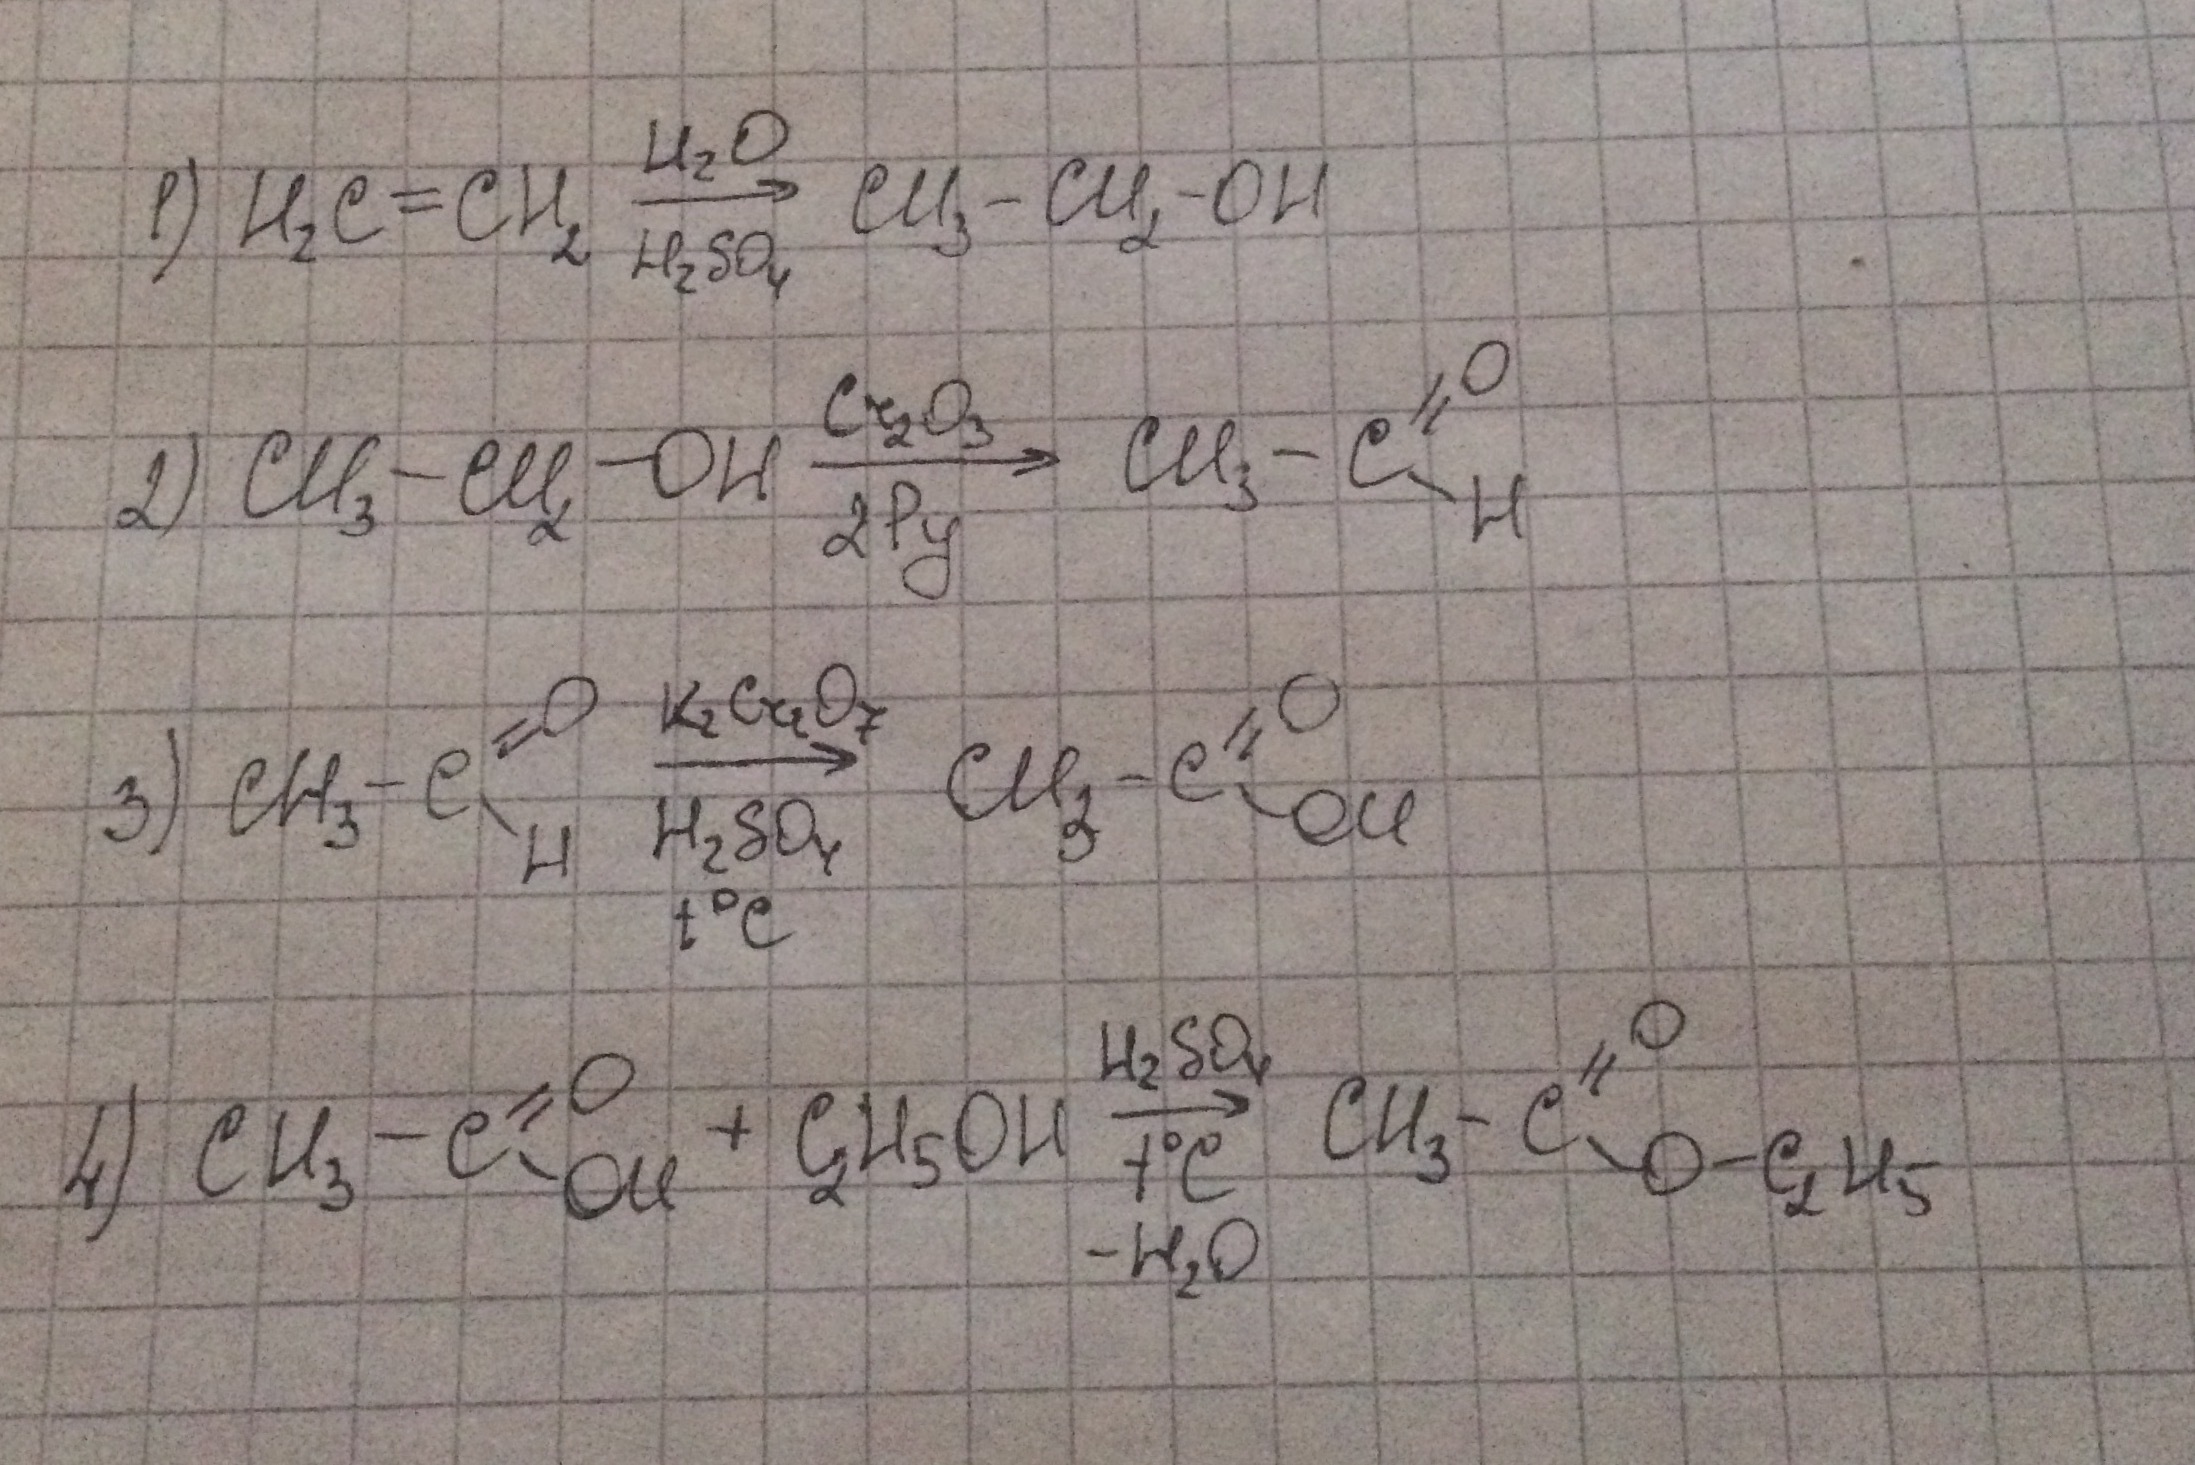 1) H₂C=CH₂ \xrightarrow[H₂SO₄]{H₂O} CH₃-CH₂-OH
2) CH₃-CH₂-OH \xrightarrow[2Py]{Cr₂O₃} CH₃-C(=O)-H
3) CH₃-C(=O)-H \xrightarrow[H₂SO₄, t°C]{K₂Cr₂O₇} CH₃-C(=O)-OH
4) CH₃-C(=O)-OH + C₂H₅OH \xrightarrow[t°C, -H₂O]{H₂SO₄} CH₃-C(=O)-O-C₂H₅